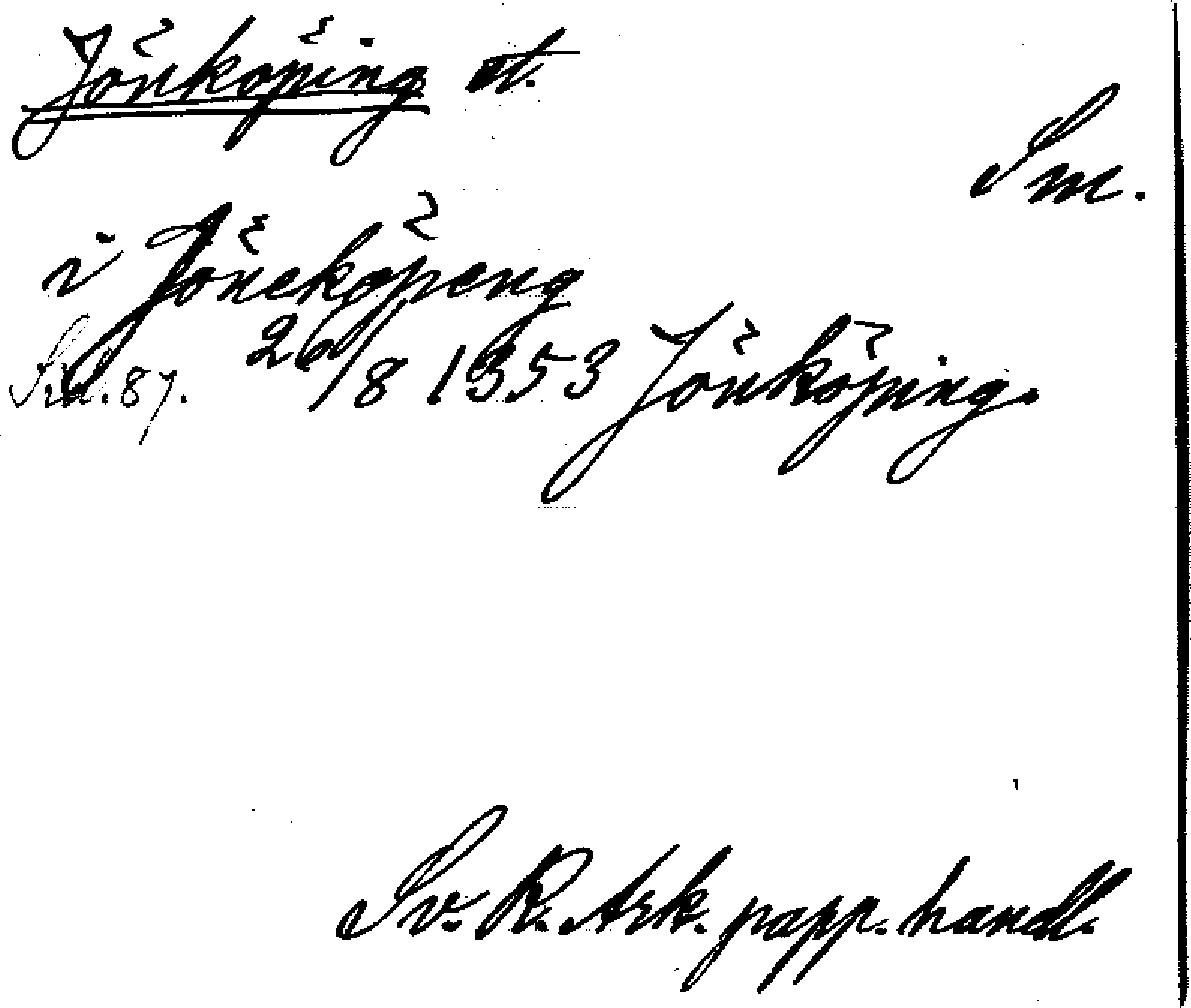 Jönköping st.
Sm.
i Jöneköpeng
26/8 1353 Jönköping.
87.
Sv. R. Ark. papp. handl.